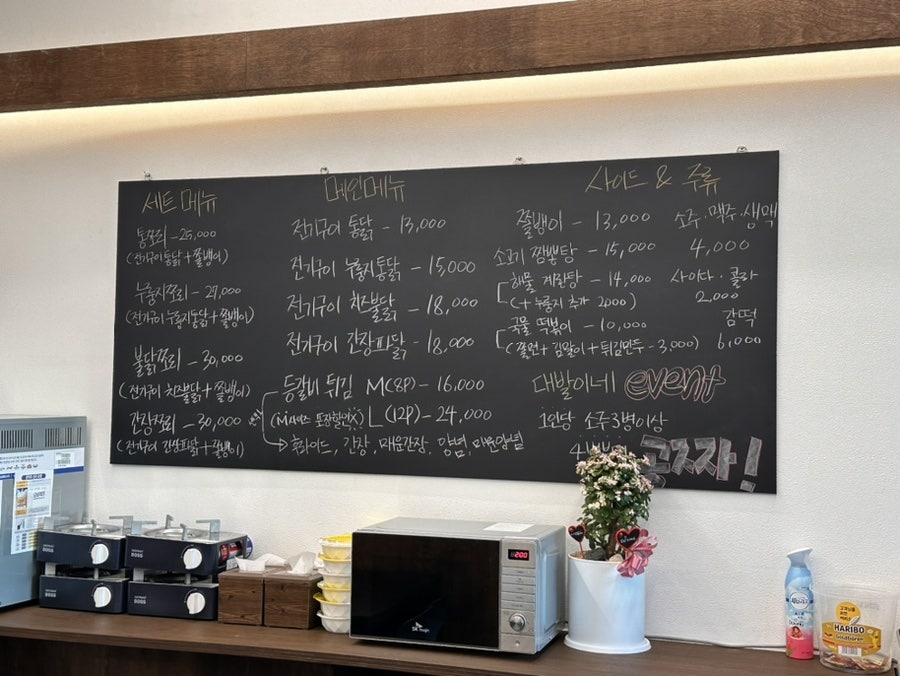 세트 메뉴
통쪼리 - 25,000
(전기구이통닭 + 쫄뱅이)
누룽지쪼리 - 27,000
(전기구이 누룽지통닭 + 쫄뱅이)
불닭쪼리 - 30,000
(전기구이 치즈불닭 + 쫄뱅이)
간장쪼리 - 30,000
(전기구이 간장파닭 + 쫄뱅이)
메인메뉴
전기구이 통닭 - 13,000
전기구이 누룽지통닭 - 15,000
전기구이 치즈불닭 - 18,000
전기구이 간장파닭 - 18,000
등갈비 튀김 M(8P) - 16,000
(M사이즈 포장할인X) L(12P) - 24,000
후라이드, 간장, 매운간장, 양념, 매운양념
사이드 & 주류
쫄뱅이 - 13,000
소고기 짬뽕탕 - 15,000
해물 계란탕 - 14,000
(+ 누룽지 추가 2000)
국물 떡볶이 - 10,000
(쫄면 + 김말이 + 튀김만두 - 3,000)
소주·맥주·생맥
4,000
사이다·콜라
2,000
감떡
6,000
대발이네 event
1인당 소주3병이상
공짜!
BOSS
BOSS
BOSS
BOSS
200
SK magic
HARIBO
Goldbären